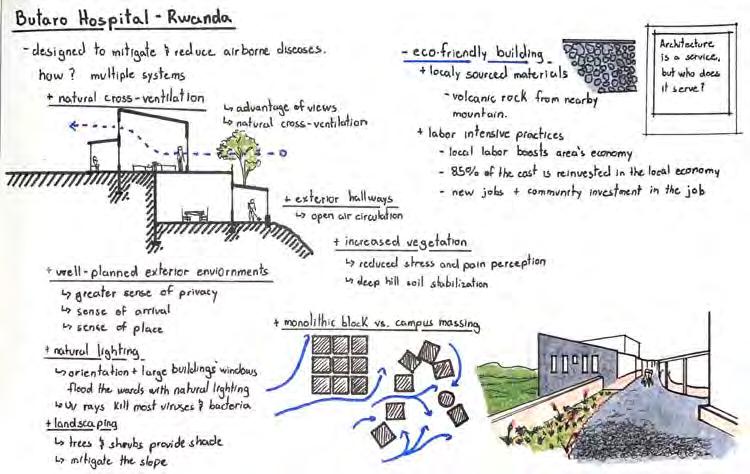 Butaro Hospital - Rwanda
- designed to mitigate & reduce airborne diseases.
how? multiple systems
+ natural cross-ventilation
↳ advantage of views
↳ natural cross-ventilation
+ exterior hallways
↳ open air circulation
+ increased vegetation
↳ reduced stress and pain perception
↳ deep hill soil stabilization
+ well-planned exterior enviornments
↳ greater sense of privacy
↳ sense of arrival
↳ sense of place
+ natural lighting
↳ orientation + large buildings' windows
flood the wards with natural lighting
↳ UV rays kill most viruses & bacteria
+ landscaping
↳ trees & shrubs provide shade
↳ mitigate the slope
+ monolithic block vs. campus massing
- eco-friendly building
+ localy sourced materials
- volcanic rock from nearby
mountain.
+ labor intensive practices
- local labor boosts area's economy
- 85% of the cost is reinvested in the local economy
- new jobs + community investment in the job
Architecture
is a service,
but who does
it serve?